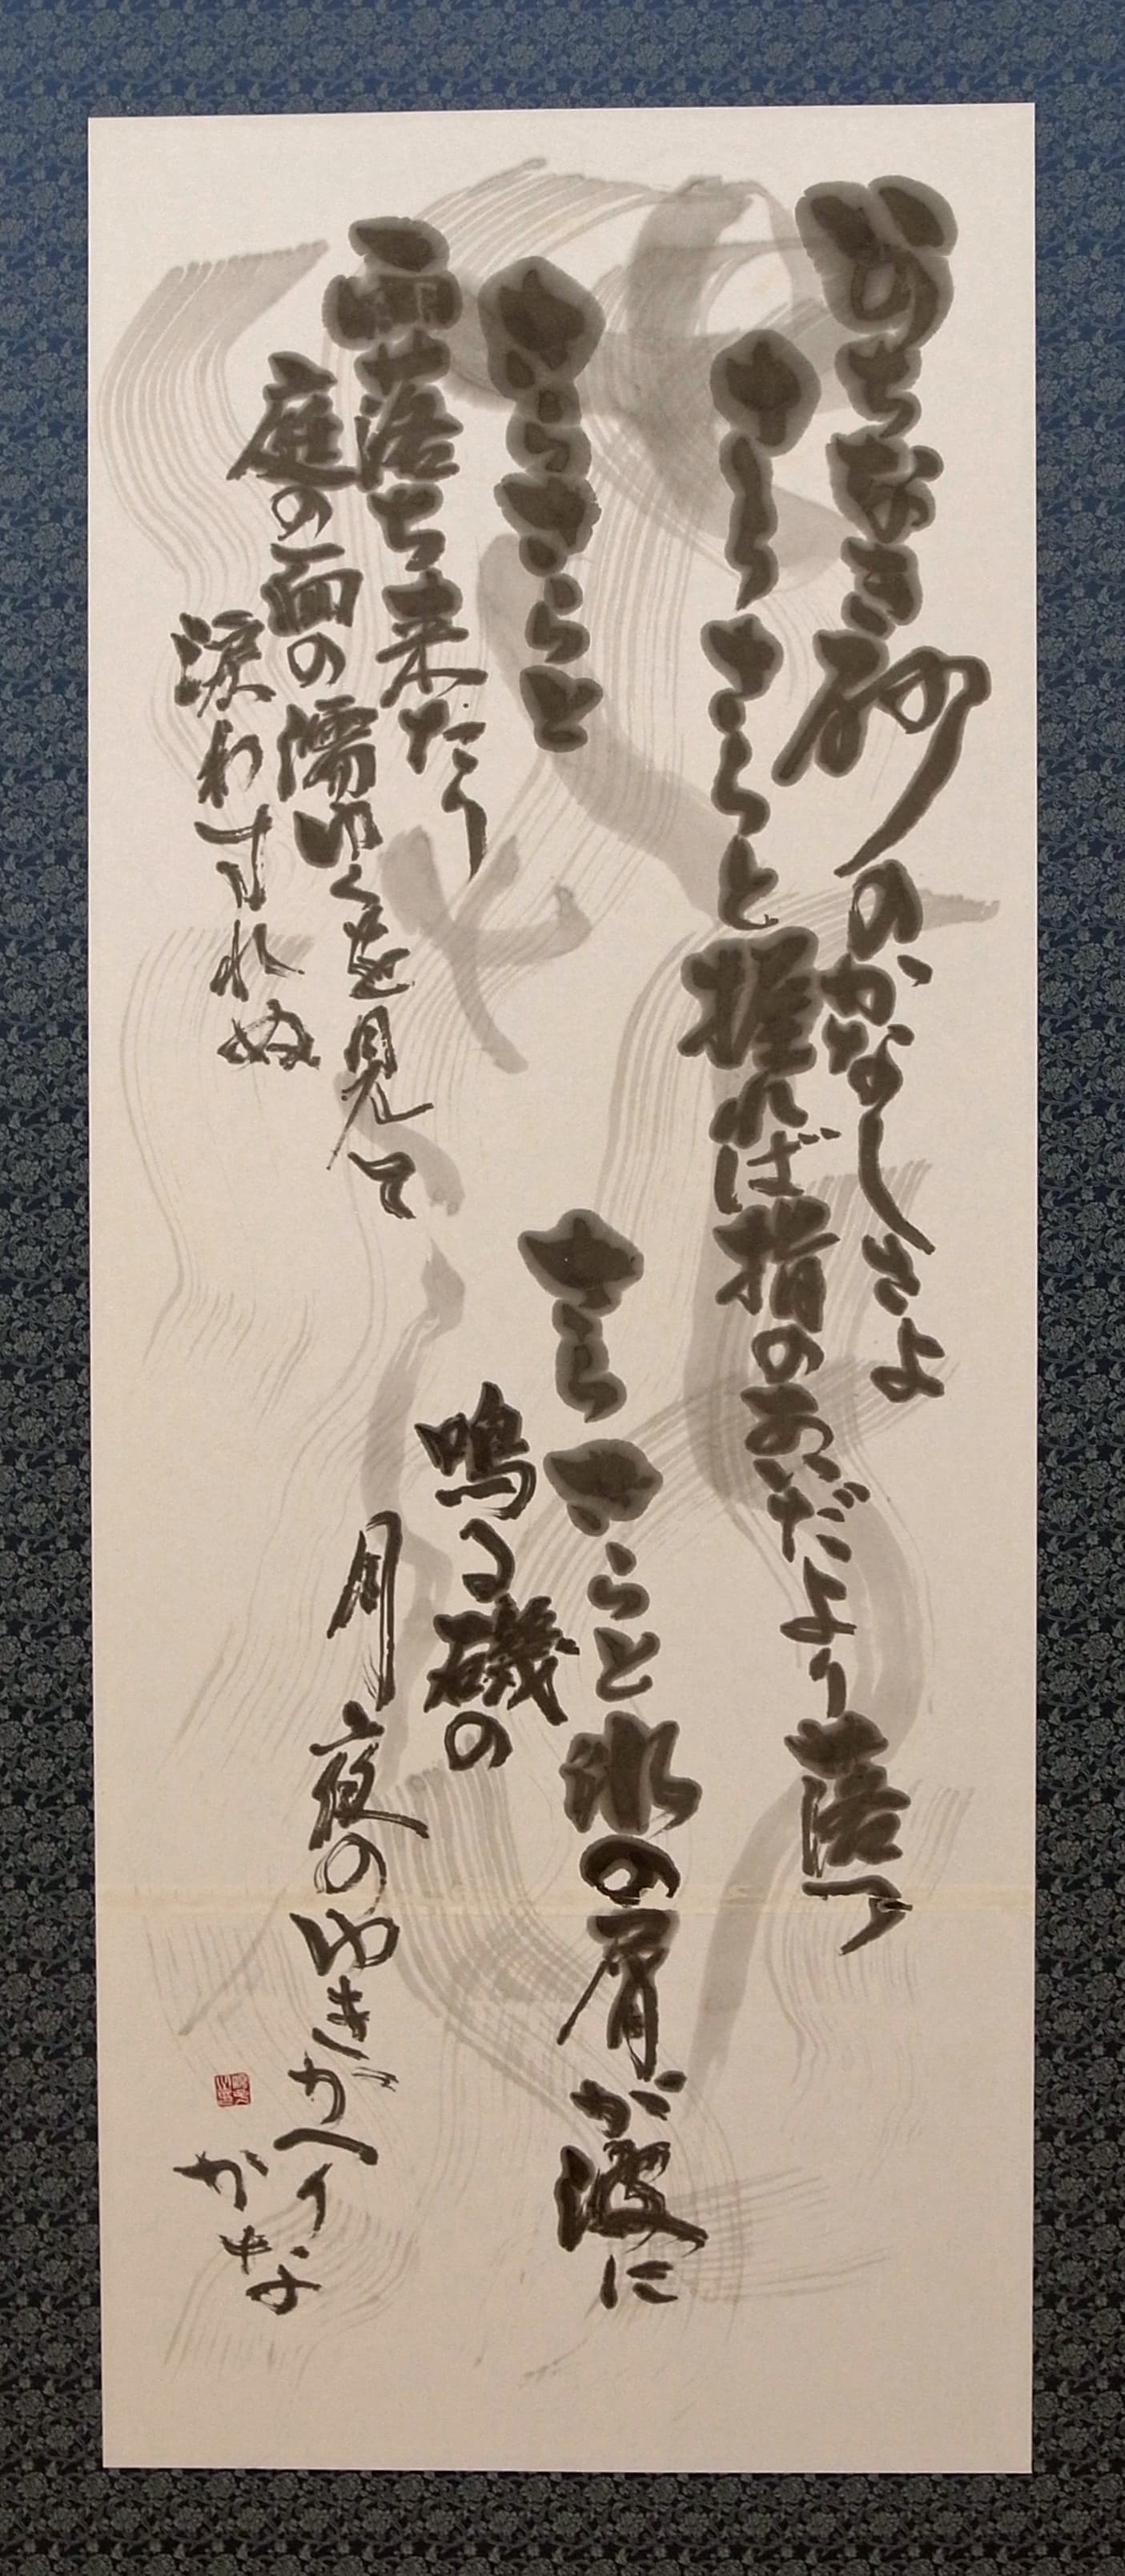 いのちなき砂のかなしさよ
さらさらと握れば指のあいだより落つ
さらさらと
雨落ち来たり
庭の面の濡ゆくを見て
涙わすれぬ
さらさらと氷の屑が波に
鳴る磯の
月夜のゆきかへり
かな